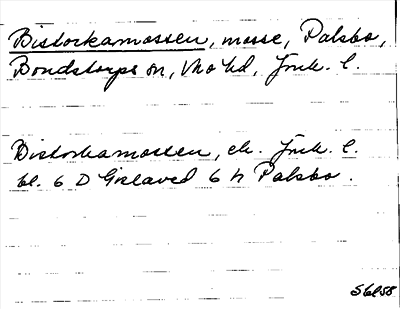 Bistockamossen, mosse, Palsbo,
Bondstorps sn, Mo hd, Jönk. l.
Bistockamossen, ek. Jönk. l.
bl. 6 D Gislaved 6 h Palsbo.